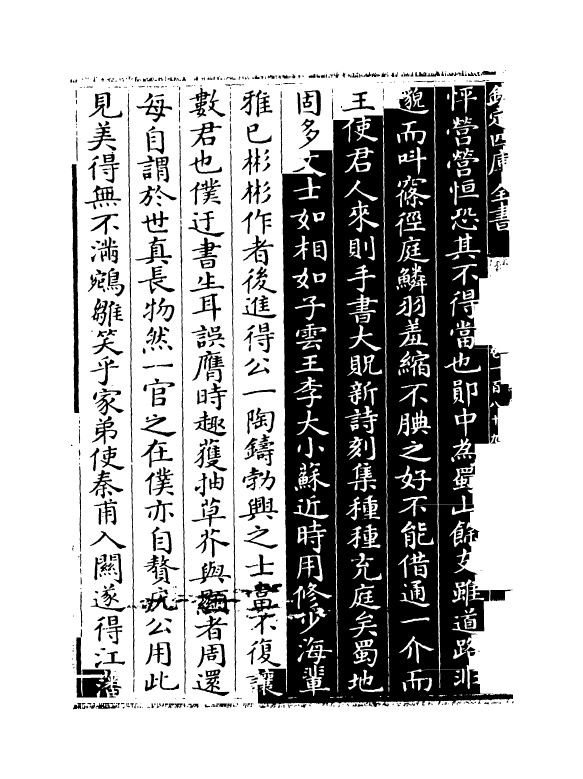 欽定四庫全書
卷一百八十九
怦營營恒恐其不得當也鄖中為蜀山餘支雖道路非
邈而叫窱徑庭鱗羽羞縮不腆之好不能借通一介而
王使君人來則手書大貺新詩刻集種種充庭矣蜀地
固多文士如相如子雲王李大小蘇近時用修少海輩
雅已彬彬作者後進得公一陶鑄勃興之士當不復讓
數君也僕迂書生耳誤膺時趣獲抽草芥與顯者周還
每自謂於世真長物然一官之在僕亦自贅疣公用此
見美得無不滿鵷雛笑乎家弟使秦甫入關遂得江藩